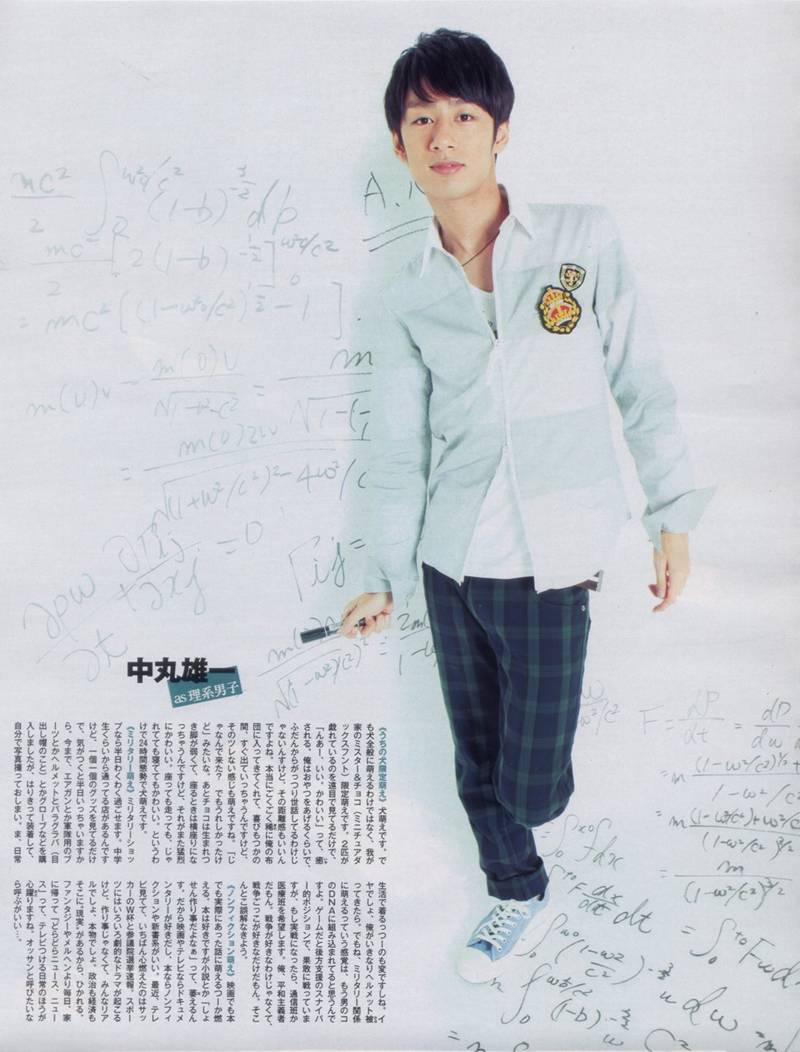 mc²/2 ∫ (1-b)^-1/2 db
A.
中丸雄一
as 理系男子
《うちの犬限定萌え》犬萌えです。で
も犬全般に萌えるわけではなく、我が
家のミスター&チョコ(ミニチュアダ
ックスフント)限定萌えです。2匹が
戯れているのを遠目で見てるだけで、
「んあー、いい、かわいい」って、癒
される。俺はおやつをあげるくらいで、
ふだんからがっつり世話してるわけじ
ゃないんすけど、その距離感もいいん
ですよね。本当にごくごく稀に俺の布
団に入ってきてくれて、喜びもつかの
間、すぐ出ていっちゃうんですけど、
そのツレない感じも萌えですね。「じ
ゃなんで来た? でもうれしかったけ
ど」みたいな。あとチョコは生まれつ
き脚が弱くて、座るときは横座りにな
っちゃうんですけど、それがまた猛烈
にかわいい。座っても走っても、つか
れてても寝ててもかわいい、というわ
けで24時間態勢で犬萌えです。
《ミリタリー萌え》ミリタリーショッ
プなら半日わくわく過ごせます。中学
生くらいから通ってる店があるんです
けど、一個一個のグッズを見てるだけ
で、気がつくと半日いっちゃいますか
ら。今まで、エアガンとか軍隊用のブ
ーツとかヘルメットとバラクラバ(目
出し帽のこと)とかグローブなどを購
入しましたが、はりきって装着して、
自分で写真撮っておしまい。ま、日常
生活で着るっつーのも変ですしね。イ
ヤでしょ、俺がいきなりヘルメット被
ってきたら。でもね、ミリタリー関係
に萌えるっていう感覚は、もう男のコ
のDNAに組み込まれてると思うんで
すよ。ゲームだと後方支援のスナイパ
ー的ポジションで、果敢に戦っていま
すが、もし実戦になったら、通信班か
医療班を希望します。俺、平和主義者
だもん。戦争が好きなわけじゃなくて、
戦争ごっこが好きなだけだもん。そこ
んとこ誤解なきよう。
《ノンフィクション萌え》映画でも本
でも実際にあった話に萌えるつーか燃
える。本は好きですが小説とか「しょ
せん作り事だよなぁ」って、萎えるん
す。だから映画やテレビならドキュメ
ンタリーが好きだし、本ならノンフィ
クションや新書系がいい。最近、テレ
ビ見てて、いちばん心燃えたのはサッ
カーのW杯と参議院選挙速報。スポー
ツにはいろいろ劇的なドラマが起こる
けど、作り事じゃなくて、みんなリア
ルでしょ、本物でしょ。政治も経済も
そこに“現実”があるから、ひかれる。
ファンタジーやメルヘンより毎日、家
に帰って「どらどらニュース、ニュー
ス」って、テレビつける日常のほうが
心躍りますね。オッサンと呼びたいな
ら呼ぶがいい…。